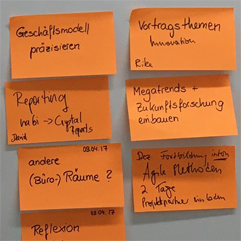 Geschäftsmodell
präzisieren
Vortragsthemen
Innovation
Rika
Reporting
habi -> Crystal
Reports
David
Megatrends +
Zukunftsforschung
einbauen
03.04.17
andere
(Büro-) Räume ?
Der Fortbildung intern
Agile Methoden
2 Tage
Projektpartner einladen
03.04.17
Reflexion